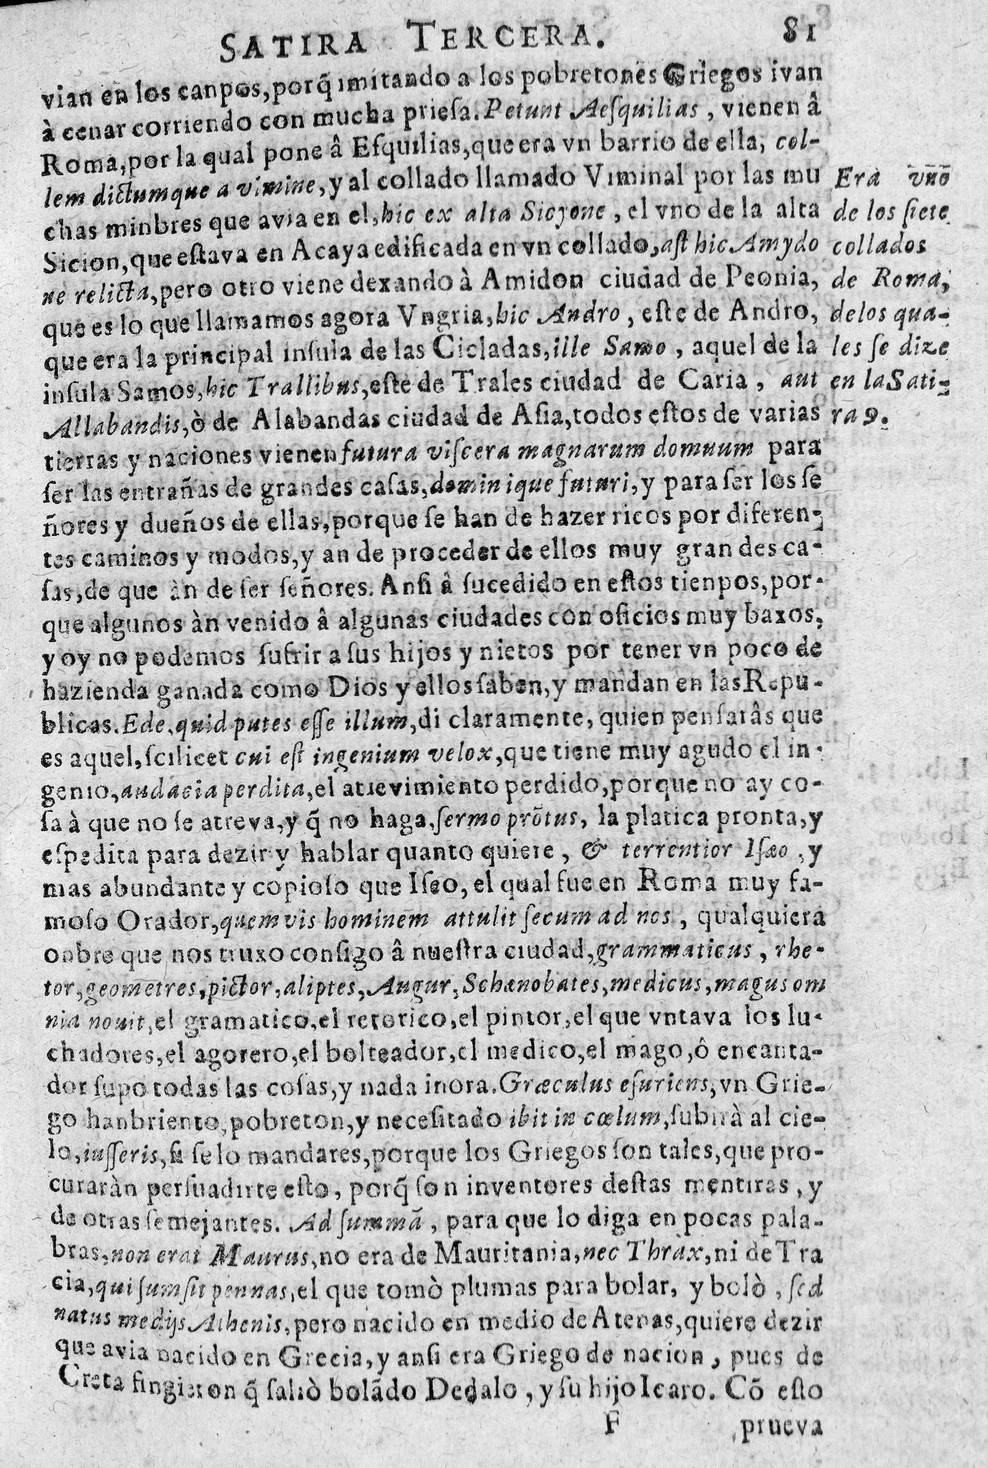 SATIRA TERCERA. 81
vian en los canpos,porq̃ imitando a los pobretones Griegos ivan
à cenar corriendo con mucha priesa.Petunt Aesquilias, vienen â
Roma,por la qual pone â Esquilias,que era vn barrio de ella, col-
lem dictumque a vimine,y al collado llamado Viminal por las mu
chas minbres que avia en el,hic ex alta Sicyone, el vno de la alta
Sicion,que estava en Acaya edificada en vn collado,ast hic Amydo
ne relicta,pero otro viene dexando à Amidon ciudad de Peonia,
que es lo que llamamos agora Vngria,hic Andro, este de Andro,
que era la principal insula de las Cicladas,ille Samo, aquel de la
insula Samos,hic Trallibus,este de Trales ciudad de Caria, aut
Allabandis,ò de Alabandas ciudad de Asia,todos estos de varias
tierras y naciones vienen futura viscera magnarum domuum para
ser las entrañas de grandes casas,dominique futuri,y para ser los se
ñores y dueños de ellas,porque se han de hazer ricos por diferen-
tes caminos y modos,y an de proceder de ellos muy grandes ca-
sas,de que àn de ser señores. Ansi â sucedido en estos tienpos,por-
que algunos àn venido â algunas ciudades con oficios muy baxos,
y oy no podemos sufrir a sus hijos y nietos por tener vn poco de
hazienda ganada como Dios y ellos saben,y mandan en las Repu-
blicas.Ede,quid putes esse illum,di claramente, quien pensarâs que
es aquel,scilicet cui est ingenium velox,que tiene muy agudo el in-
genio,audacia perdita,el atrevimiento perdido,porque no ay co-
sa à que no se atreva,y q̃ no haga,sermo prõtus, la platica pronta,y
espedita para dezir y hablar quanto quiere, & terrentior Isæo, y
mas abundante y copioso que Iseo, el qual fue en Roma muy fa-
moso Orador,quem vis hominem attulit secum ad nos, qualquiera
onbre que nos truxo consigo â nuestra ciudad,grammaticus, rhe-
tor,geometres,pictor,aliptes,Augur,Schœnobates,medicus,magus om
nia novit,el gramatico,el retorico,el pintor,el que vntava los lu-
chadores,el agorero,el bolteador,el medico,el mago,ô encanta-
dor supo todas las cosas,y nada inora.Græculus esuriens,vn Grie-
go hanbriento,pobreton,y necesitado ibit in cœlum,subirà al cie-
lo,iusseris,si se lo mandares,porque los Griegos son tales,que pro-
curaràn persuadirte esto, porq̃ son inventores destas mentiras, y
de otras semejantes. Ad summã, para que lo diga en pocas pala-
bras,non erat Maurus,no era de Mauritania,nec Thràx,ni de Tra
cia,qui sumsit pennas,el que tomò plumas para bolar, y bolò, sed
natus medijs Athenis,pero nacido en medio de Atenas,quiere dezir
que avia nacido en Grecia,y ansi era Griego de nacion, pues de
Creta fingieron q̃ saliò bolãdo Dedalo, y su hijo Icaro. Cõ esto
F prueva
Era vno
de los siete
collados
de Roma,
delos qua-
les se dize
en la Sati-
ra 9.